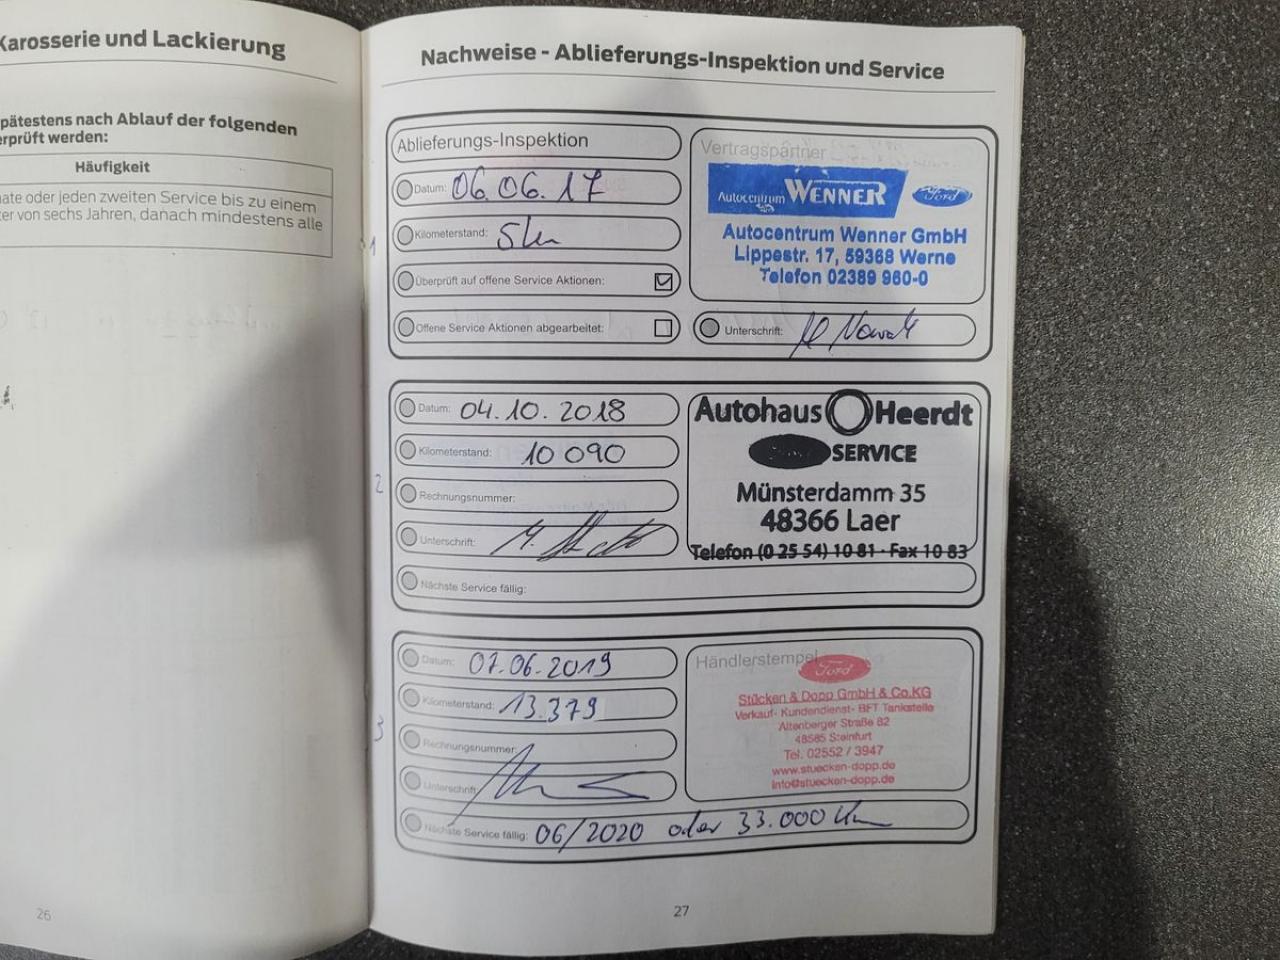 Karosserie und Lackierung
pätestens nach Ablauf der folgenden
erprüft werden:
Häufigkeit
nate oder jeden zweiten Service bis zu einem
ter von sechs Jahren, danach mindestens alle
26
Nachweise - Ablieferungs-Inspektion und Service
1
Ablieferungs-Inspektion
Datum: 06.06.17
Kilometerstand: 5km
Überprüft auf offene Service Aktionen:
Offene Service Aktionen abgearbeitet:
Vertragspartner
Autocentrum WENNER Ford
Autocentrum Wenner GmbH
Lippestr. 17, 59368 Werne
Telefon 02389 960-0
Unterschrift:
2
Datum: 04.10.2018
Kilometerstand: 10 090
Rechnungsnummer:
Unterschrift:
Nächste Service fällig:
Autohaus Heerdt
SERVICE
Münsterdamm 35
48366 Laer
Telefon (0 25 54) 10 81 · Fax 10 83
3
Datum: 07.06.2019
Kilometerstand: 13.379
Rechnungsnummer:
Unterschrift:
Nächste Service fällig: 06/2020 oder 33.000 km
Händlerstempel
Ford
Stücken & Dopp GmbH & Co.KG
Verkauf- Kundendienst- BFT Tankstelle
Altenberger Straße 82
48565 Steinfurt
Tel. 02552 / 3947
www.stuecken-dopp.de
info@stuecken-dopp.de
27